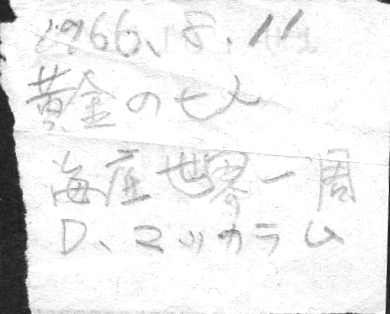 1966.8.11
黄金の七人
海底世界一周
D、マッカラム